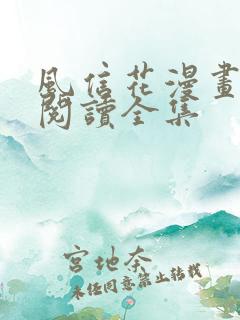 風信花漫畫
閱讀全集
宮地奈
未经同意禁止转载